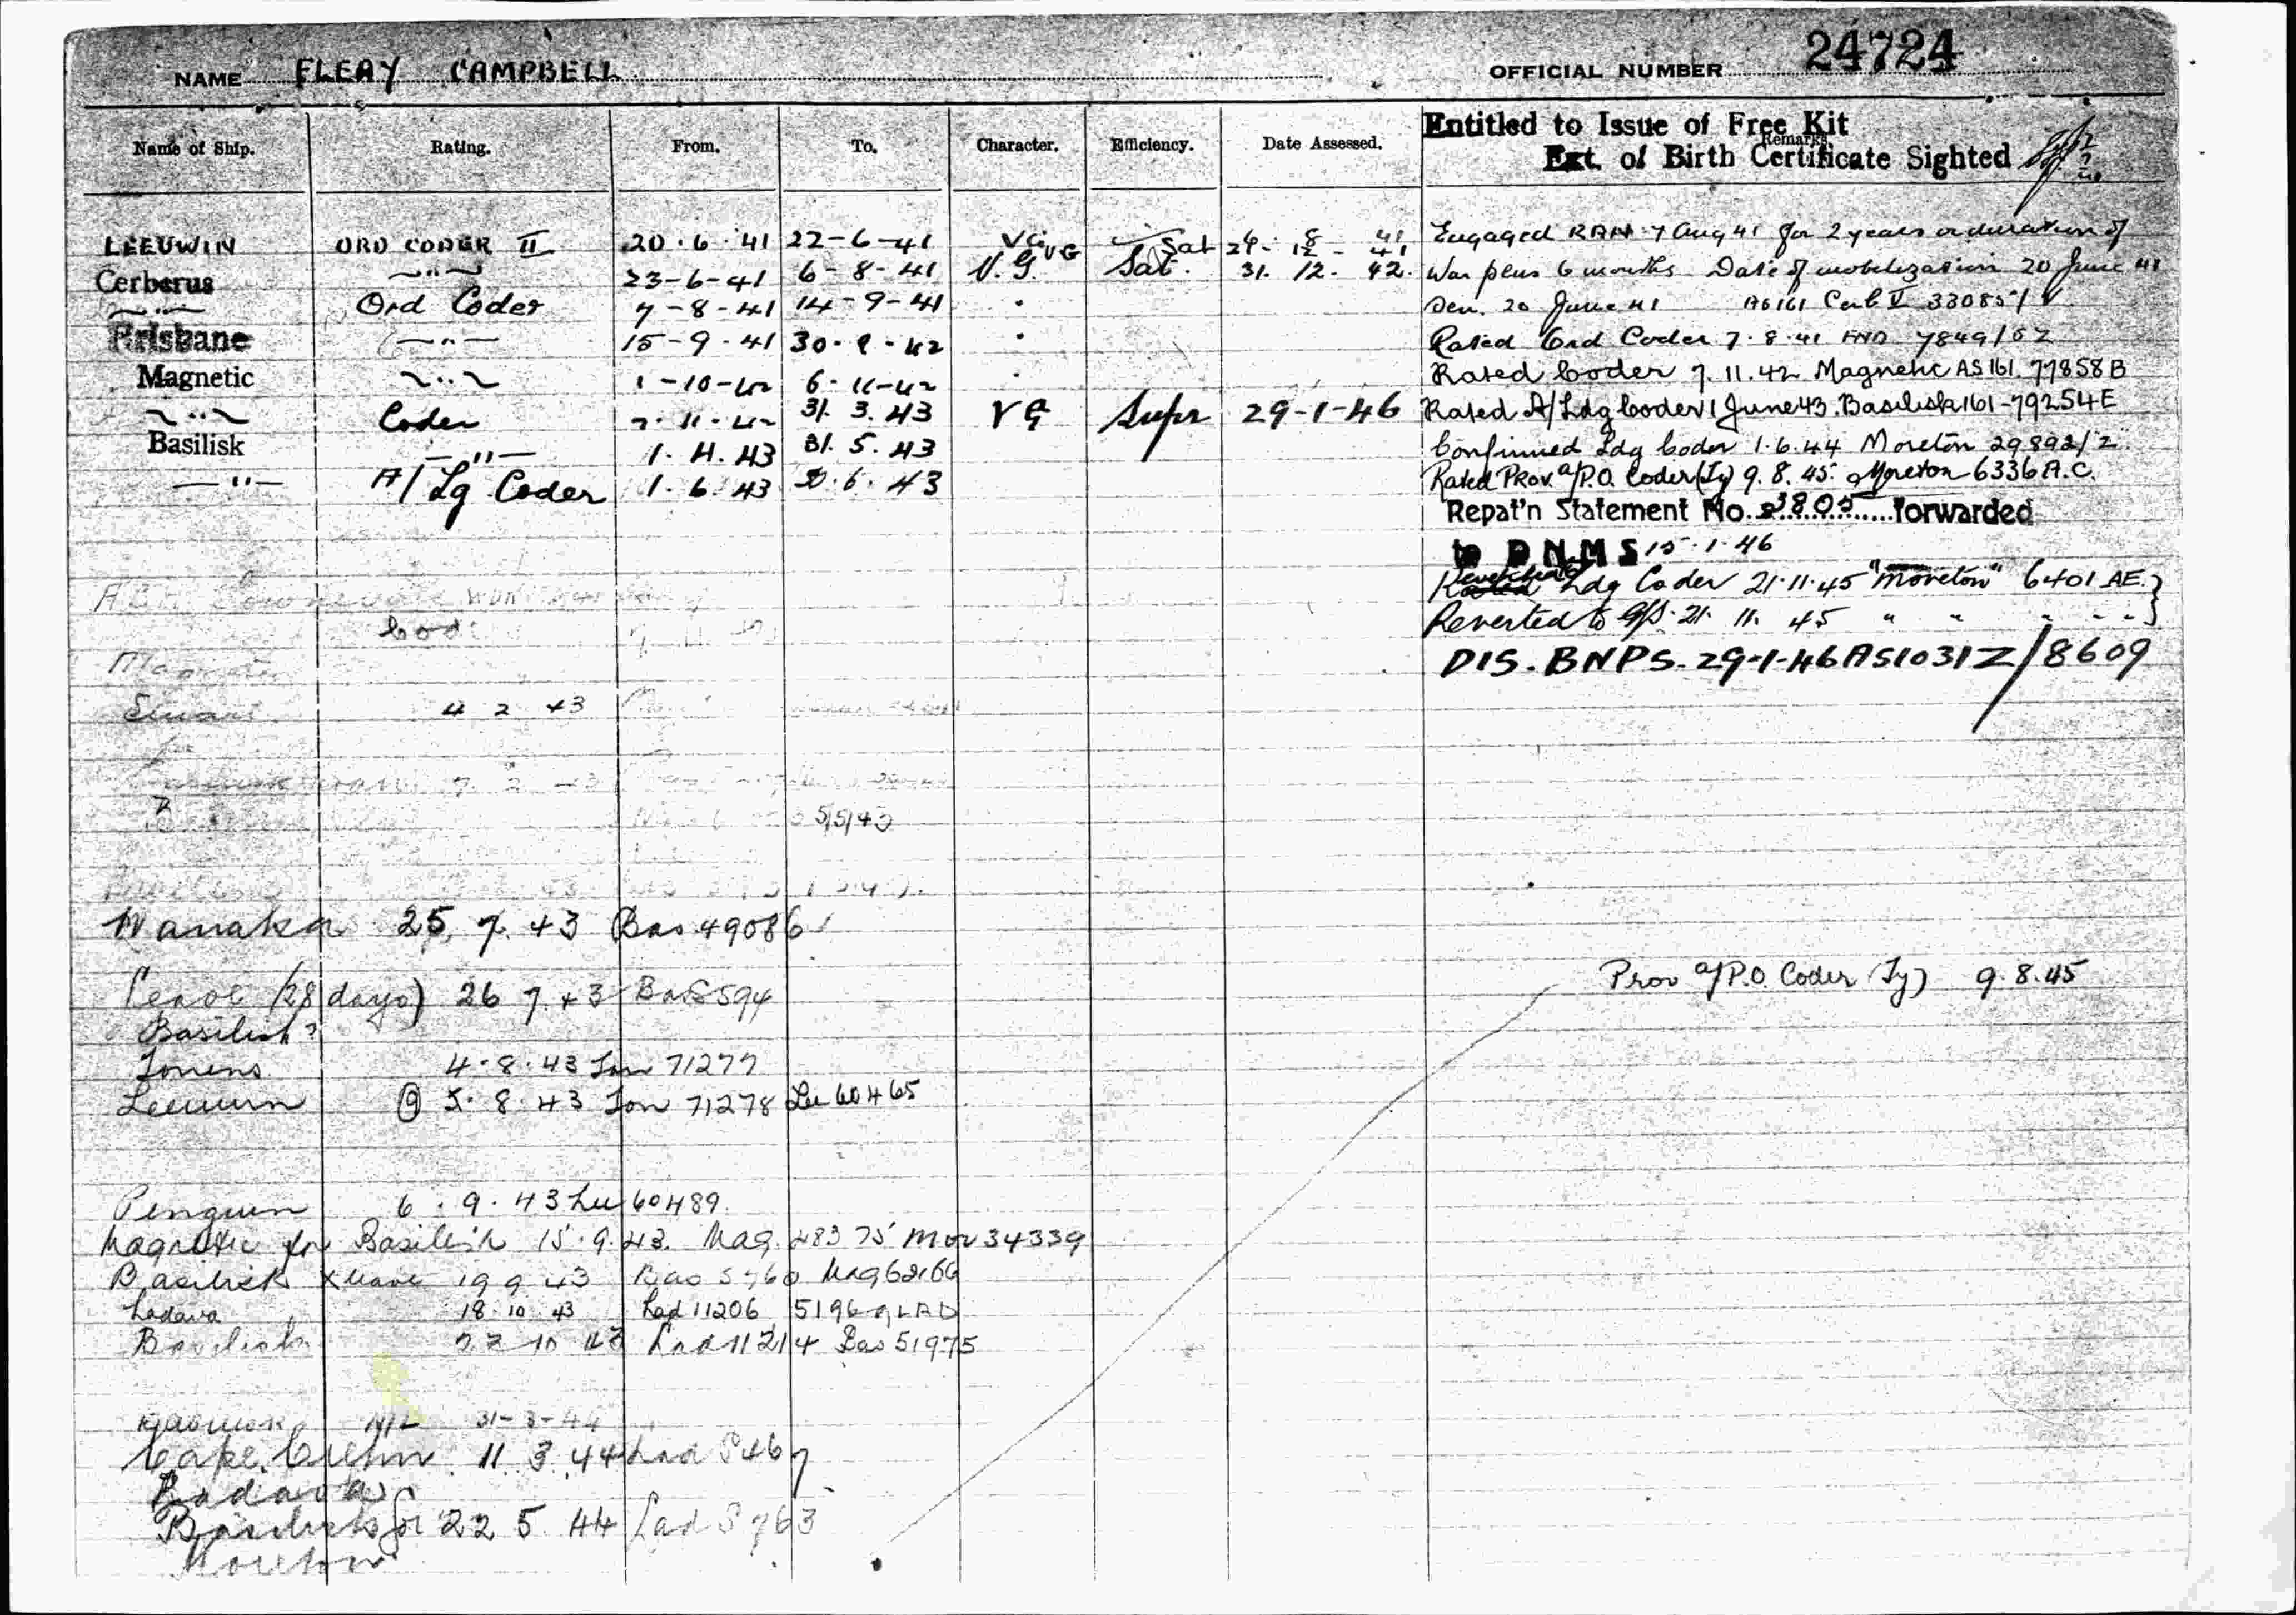 NAME FLEAY CAMPBELL OFFICIAL NUMBER 24724
Name of Ship. Rating. From. To. Character. Efficiency. Date Assessed. Remarks.
Entitled to Issue of Free Kit
Ext. of Birth Certificate Sighted
LEEUWIN ORD CODER II 20·6·41 22-6-41 VG Sat 31. 12. 42.
Cerberus —"— 23-6-41 6-8-41 V.G. Sat.
—"— Ord Coder 7-8-41 14-9-41
Brisbane —"— 15-9-41 30-9-42
Magnetic —"— 1-10-42 6-11-42
—"— Coder 7-11-42 31. 3. 43 VG Supr 29-1-46
Basilisk —"— 1. 4. 43 31. 5. 43
—"— A/Lg Coder 1. 6. 43 6. 43
Engaged RAN 7 Aug 41 for 2 years or duration of
War plus 6 months Date of mobilization 20 June 41
Sen. 20 June 41 AS161 Cerb V 33085/V
Rated Ord Coder 7.8.41 7849/52
Rated Coder 7.11.42 Magnetic AS161. 77858B
Rated A/Ldg Coder 1 June 43. Basilisk 161-79254E
Confirmed Ldg Coder 1.6.44 Moreton 29892/Z
Rated Prov. a/P.O. Coder (Ty) 9.8.45. Moreton 6336A.C.
Repat'n Statement No 3805 forwarded
to D N M S 15·1·46
Reverted Ldg Coder 21·11·45 "Moreton" 6401 AE.
Reverted to 21. 11. 45 " " " " "
DIS. BNPS. 29-1-46 AS1031Z/8609
Cod
4 2 43
5/5/43
Wanaka 25. 7. 43 Bas 49086
Leave (28 days) 26 7 43 Bas 594
Prov a/P.O. Coder (Ty) 9.8.45
Basilisk?
Torrens 4·8·43 Ton 71277
Leeuwin 5·8·43 Ton 71278 Lu 60465
Penguin 6. 9. 43 Lu 60489
Magnetic for Basilisk 15.9.43. Mag. 28375 Mor 34339
Basilisk x leave 19 9 43 Bas 5760 Mag 62166
Ladava 18·10·43 Lad 11206 5196 LAD
Basilisk 22 10 43 Lad 11214 Bas 51975
NIL 31-3-44
Cape 11 3 44 Lad S467
Ladava
Basilisk for 22 5 44 Lad S763
Moreton